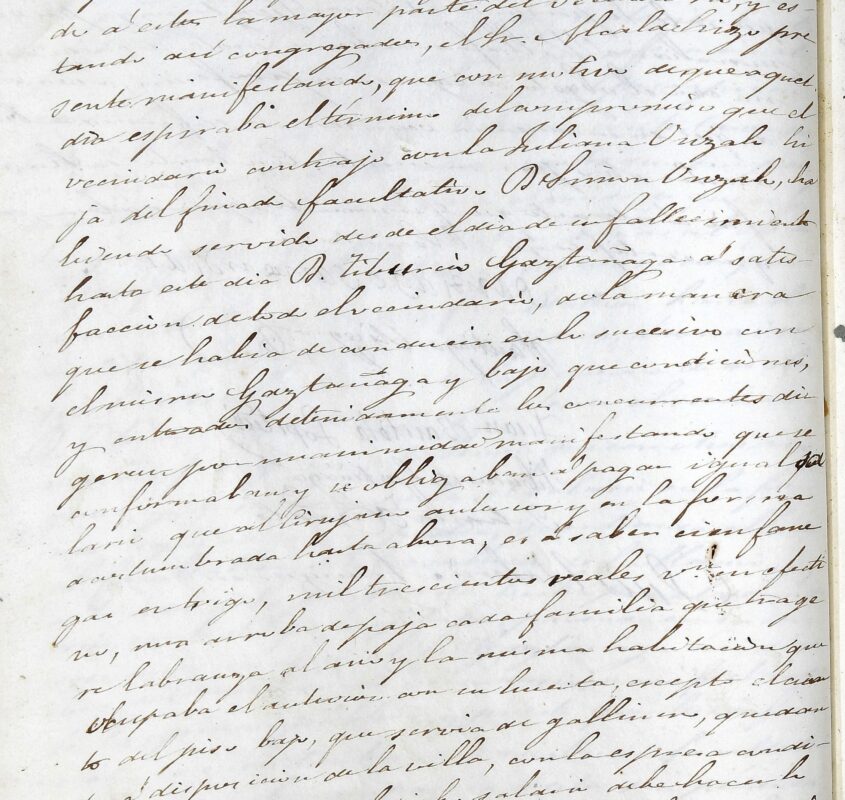 de á estos la mayor parte del
tando asi congregados, el Sr. Alcalde hizo pre
sente manifestando, que con motivo de que aquel
dia espiraba el término del compromiso que el
vecindario contrajo con la Juliana Unzalu hi
ja del finado facultativo Dn Simon Unzalu, ha
biendo servido desde el dia de su fallecimiento
hasta este dia D. Tiburcio Gaztañaga á satis
faccion de todo el vecindario, de la manera
que se habia de conducir en lo sucesivo con
el mismo Gaztañaga y bajo que condiciones,
y enterados detenidamente los concurrentes di
geron por unanimidad manifestando que se
conformaban y se obligaban á pagar igual sa
lario que al Cirujano anterior y en la forma
acostumbrada hasta ahora, es á saber cien fane
gas en trigo, mil trescientos reales vn. en efecti
vo, una arroba de paja cada familia que trage
re labranza al año y la misma habitacion que
ocupaba el anterior con su huerta, escepto el cuar
to del piso bajo, que servia de gallinero, quedan
á disposicion de la villa, con la espresa condi-
salario debe hacer